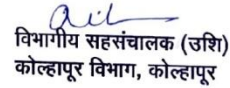 विभागीय सहसंचालक (उशि)
कोल्हापूर विभाग, कोल्हापूर